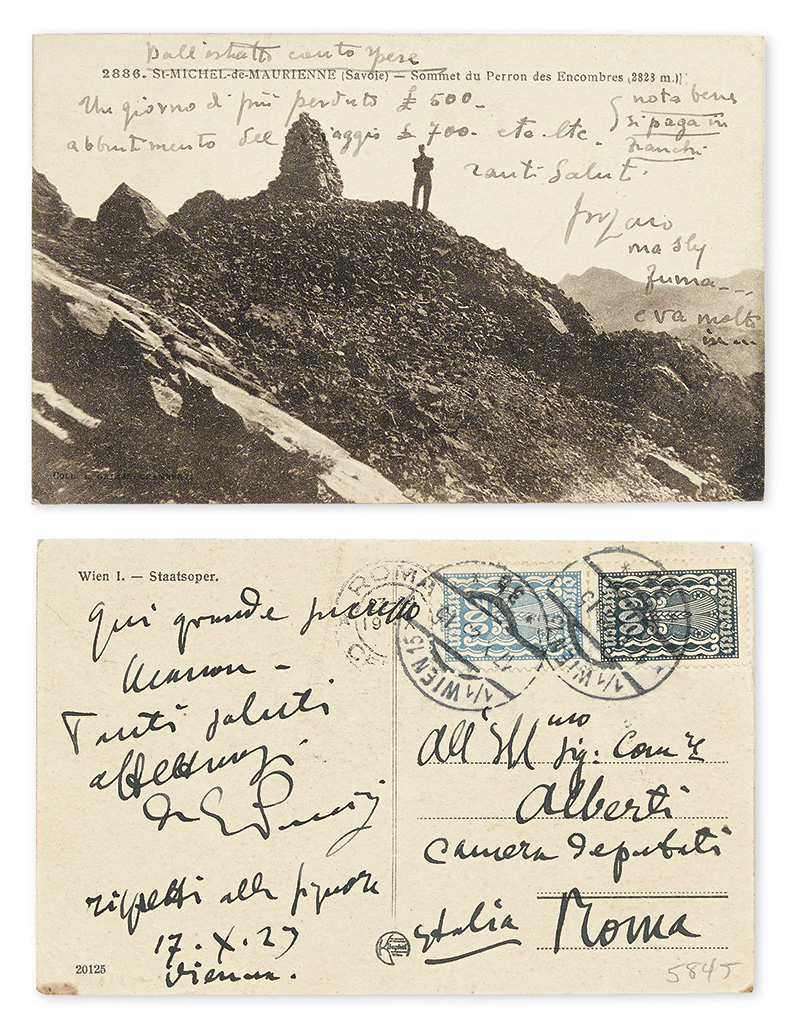 Dall'estratto conto spese
2886. St-MICHEL-de-MAURIENNE (Savoie) — Sommet du Perron des Encombres (2823 m.)
Un giorno di più perduto £ 500-
abbuttimento del viaggio £ 700- etc. etc.
nota bene
si paga in
franchi
Tanti Saluti
ma Sly
fuma---
e va molto
Wien I. — Staatsoper.
Qui grande successo
Manon -
Tanti saluti
affettuosi
rispetti alla signora
17. X. 23
Vienna.
20125
ROMA
1/1 WIEN 15
1/1 WIEN
Österreich
All'Ill mo
Sig: Com re
Alberti
Camera deputati
Roma
Italia
5845